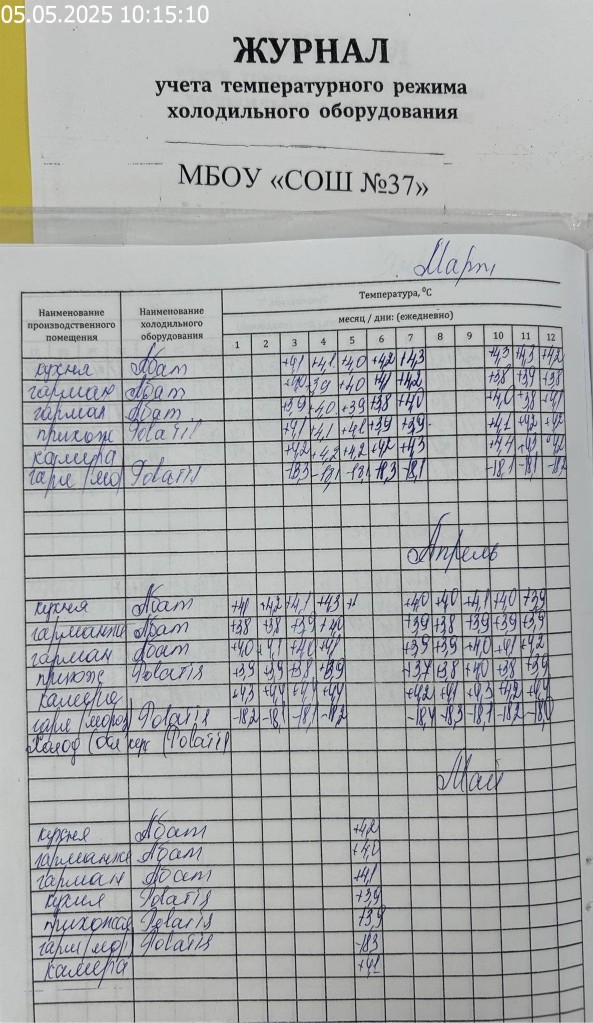 05.05.2025 10:15:10
ЖУРНАЛ
учета температурного режима
холодильного оборудования
МБОУ «СОШ №37»
Март
Наименование производственного помещения Наименование холодильного оборудования Температура, °С
месяц / дни: (ежедневно)
1 2 3 4 5 6 7 8 9 10 11 12
кухня Абат +4,1 +4,1 +4,0 +4,2 +4,3 +4,3 +4,3 +4,2
гарман Абат +4,0 +3,9 +4,0 +4,1 +4,2 +3,8 +3,9 +3,8
гарман Абат +3,9 +4,0 +3,9 +3,8 +4,0 +4,0 +3,8 +4,1
прихож Polatis +4,1 +4,1 +3,9 +3,9 +4,1 +4,2 +4,2
камера +4,2 +4,2 +4,2 +4,2 +4,3 +4,4 +4,3 +4,2
гарм (мо) Polatis -18,3 -18,1 -18,3 -18,1 -18,1 -18,1 -18,2
Апрель
кухня Абат +4,1 +4,2 +4,1 +4,3 +4,0 +4,0 +4,1 +4,0 +3,9
гарманжи Абат +3,8 +3,8 +3,9 +4,0 +3,9 +3,8 +3,9 +3,9 +3,9
гарман Абат +4,0 +4,1 +4,0 +4,1 +3,9 +3,9 +4,0 +4,1 +4,2
прихож Polatis +3,9 +3,9 +3,8 +3,9 +3,7 +3,8 +4,0 +3,8 +3,9
камера +4,3 +4,4 +4,4 +4,4 +4,2 +4,1 +4,3 +4,2 +4,4
гарм (мороз) Polatis -18,2 -18,1 -18,1 -18,2 -18,4 -18,3 -18,1 -18,2 -18,0
Холод (Polatis)
Май
кухня Абат +4,2
гарманжи Абат +4,0
гарман Абат +4,1
кухня Polatis +3,9
прихожая Polatis +3,9
гарм (мо) Polatis -18,3
камера +4,1